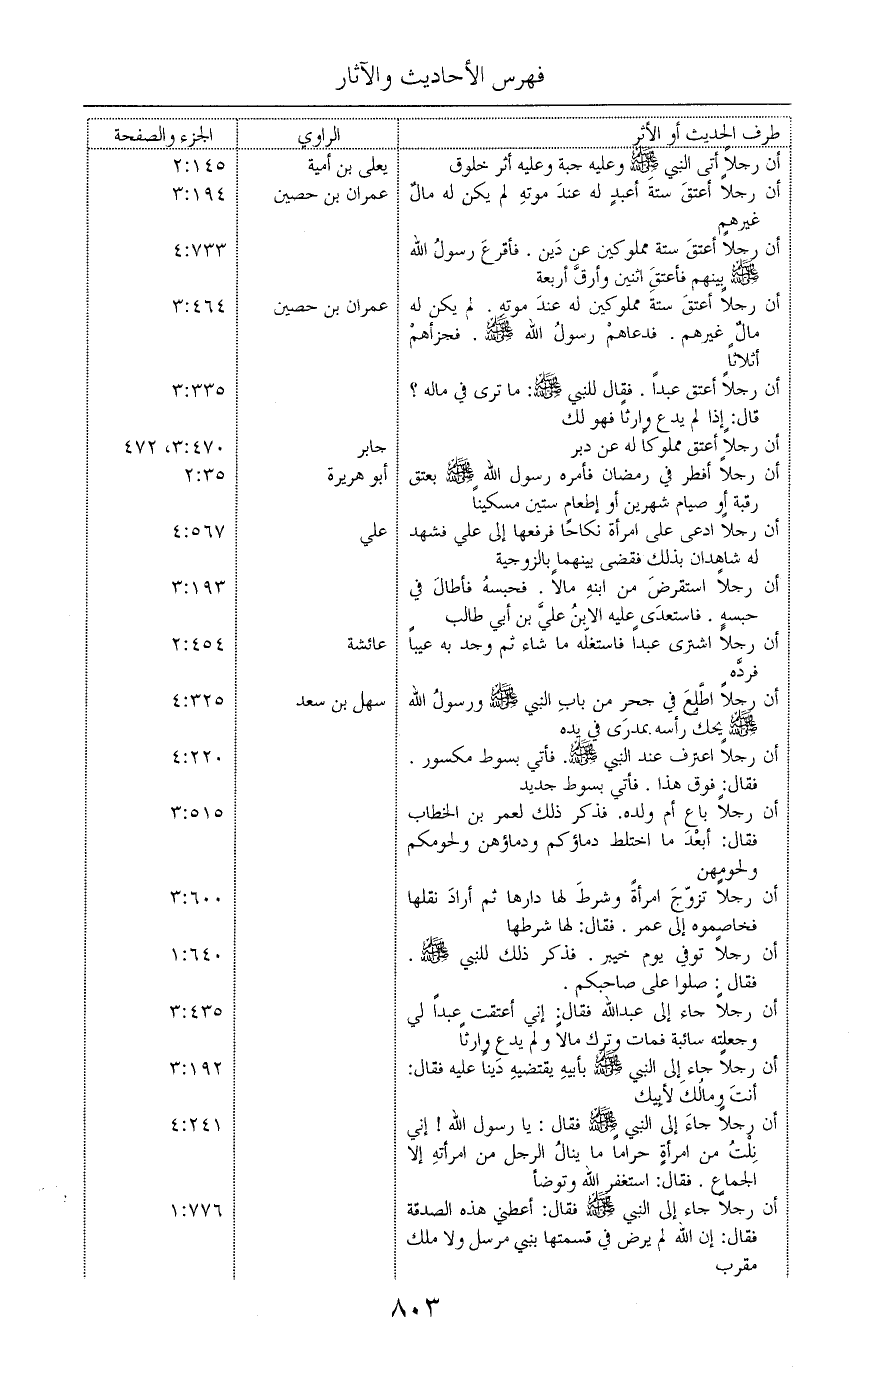 فهرس الأحاديث والآثار
طرف الحديث أو الأثر الراوي الجزء والصفحة
أن رجلاً أتى النبي ﷺ وعليه جبة وعليه أثر خلوق يعلى بن أمية ٢:١٤٥
أن رجلاً أعتقَ ستةَ أعبدٍ له عندَ موتهِ لم يكن له مالٌ عمران بن حصين ٣:١٩٤
غيرهم
أن رجلاً أعتقَ ستة مملوكين عن دَين . فأقرعَ رسولُ الله ٤:٧٣٣
ﷺ بينهم فأعتقَ اثنين وأرقَّ أربعة
أن رجلاً أعتقَ ستةَ مملوكين له عندَ موتهِ . لم يكن له عمران بن حصين ٣:٤٦٤
مالٌ غيرهم . فدعاهمْ رسولُ الله ﷺ . فجزأهمْ
أثلاثاً
أن رجلاً أعتق عبداً . فقال للنبي ﷺ: ما ترى في ماله ؟ ٣:٣٣٥
قال: إذا لم يدع وارثاً فهو لك
أن رجلاً أعتق مملوكاً له عن دبر جابر ٣:٤٧٠، ٤٧٢
أن رجلاً أفطر في رمضان فأمره رسول الله ﷺ بعتق أبو هريرة ٢:٣٥
رقبة أو صيام شهرين أو إطعام ستين مسكيناً
أن رجلاً ادعى على امرأة نكاحًا فرفعها إلى علي فشهد علي ٤:٥٦٧
له شاهدان بذلك فقضى بينهما بالزوجية
أن رجلاً استقرضَ من ابنهِ مالاً . فحبسهُ فأطالَ في ٣:١٩٣
حبسهِ . فاستعدَى عليه الابنُ عليَّ بن أبي طالب
أن رجلاً اشترى عبداً فاستغلّه ما شاء ثم وجد به عيباً عائشة ٢:٤٥٤
فردَّه
أن رجلاً اطَّلعَ في جحر من بابِ النبي ﷺ ورسولُ الله سهل بن سعد ٤:٣٢٥
ﷺ يحكُ رأسه بمدرَى في يده
أن رجلاً اعترف عند النبي ﷺ. فأتي بسوط مكسور . ٤:٢٢٠
فقال: فوق هذا . فأتي بسوط جديد
أن رجلاً باع أم ولده. فذكر ذلك لعمر بن الخطاب ٣:٥١٥
فقال: أبعْدَ ما اختلط دماؤكم ودماؤهن ولحومكم
ولحومهن
أن رجلاً تزوّجَ امرأةً وشرطَ لها دارها ثم أرادَ نقلها ٣:٦٠٠
فخاصموه إلى عمر . فقال: لها شرطها
أن رجلاً توفي يوم خيبر . فذكر ذلك للنبي ﷺ . ١:٦٤٠
فقال : صلوا على صاحبكم .
أن رجلاً جاء إلى عبدالله فقال: إني أعتقت عبداً لي ٣:٤٣٥
وجعلته سائبة فمات وترك مالاً ولم يدع وارثاً
أن رجلاً جاءِ إلى النبي ﷺ بأبيهِ يقتضيهِ دَيناً عليه فقال: ٣:١٩٢
أنتَ ومالُكَ لأبيك
أن رجلاً جاءَ إلى النبي ﷺ فقال : يا رسول الله ! إني ٤:٢٤١
نِلْتُ من امرأةٍ حراماً ما ينالُ الرجل من امرأتهِ إلا
الجماع . فقال: استغفر الله وتوضأ
أن رجلاً جاء إلى النبي ﷺ فقال: أعطني هذه الصدقة ١:٧٧٦
فقال: إن الله لم يرض في قسمتها بنبي مرسل ولا ملك
مقرب
٨٠٣